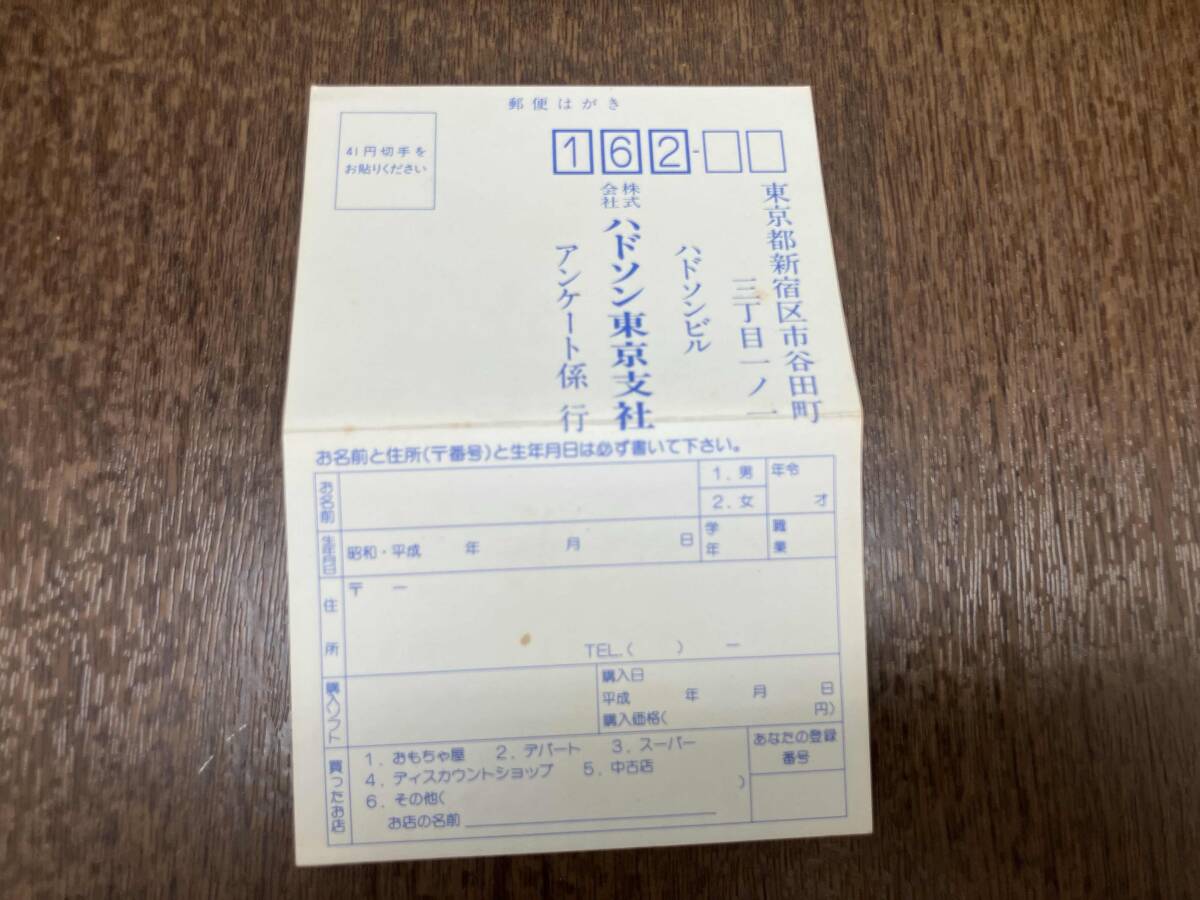 郵便はがき
41円切手を
お貼りください
162-
東京都新宿区市谷田町
三丁目一ノ一
ハドソンビル
株式会社 ハドソン東京支社
アンケート係 行
お名前と住所(〒番号)と生年月日は必ず書いて下さい。
お名前
1. 男
2. 女
年令
才
生年月日
昭和・平成 年 月 日
学年
職業
住所
〒 ー
TEL.( ) ー
購入ソフト
購入日
平成 年 月 日
購入価格( 円)
買ったお店
1. おもちゃ屋 2. デパート 3. スーパー
4. ディスカウントショップ 5. 中古店
6. その他( )
お店の名前
あなたの登録
番号